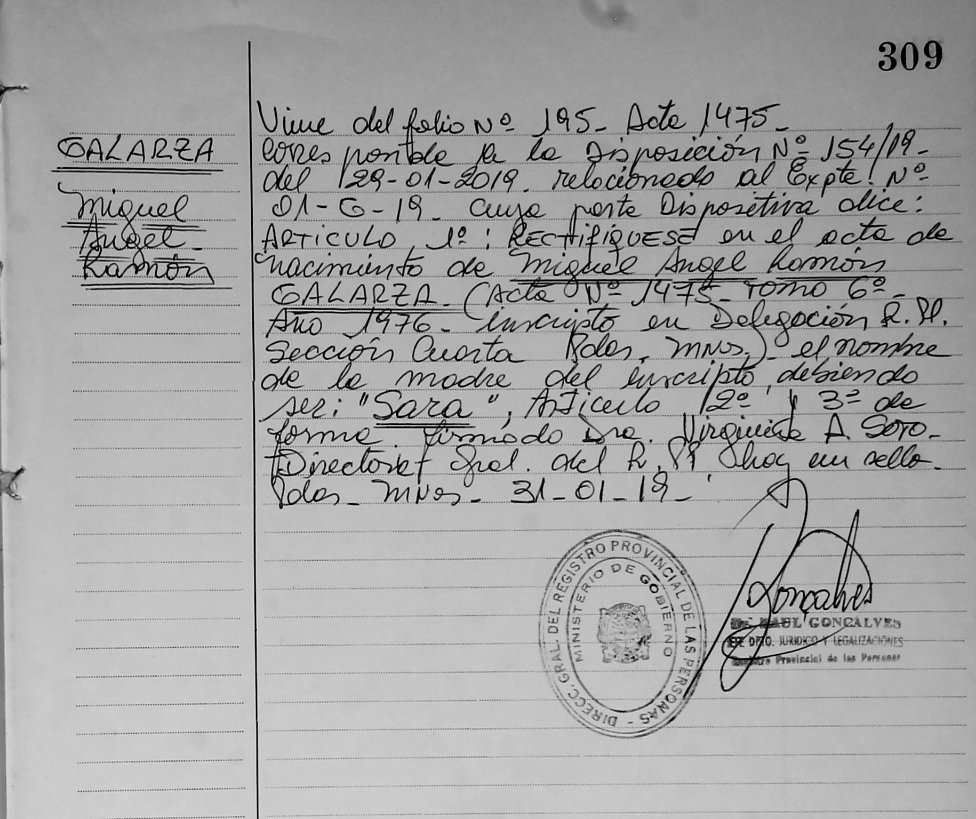 309
GALARZA
Miguel
Angel
Ramón
Viene del folio Nº 195- Acta 1475-
Corresponde a la Disposición Nº 154/19-
del 29-01-2019. relacionado al Expte. Nº
01-G-19- cuya parte Dispositiva dice:
ARTICULO 1º: RECTIFIQUESE en el acta de
nacimiento de Miguel Angel Ramón
GALARZA. (Acta Nº 1475- Tomo 6º-
Año 1976- inscripto en Delegación R.P.
Sección Cuarta Pdas. Mnes.) el nombre
de la madre del inscripto, debiendo
ser: "Sara", Articulo 2º y 3º de
forma. firmado Dra. Virginia A. Soto-
Directora Gral. del R.P. hay un sello-
Pdas- Mnes- 31-01-19-
DIRECC. GRAL. DEL REGISTRO PROVINCIAL DE LAS PERSONAS -
MINISTERIO DE GOBIERNO
Gonçalves
RAUL GONCALVES
DPTO. JURIDICO Y LEGALIZACIONES
Provincial de las Personas